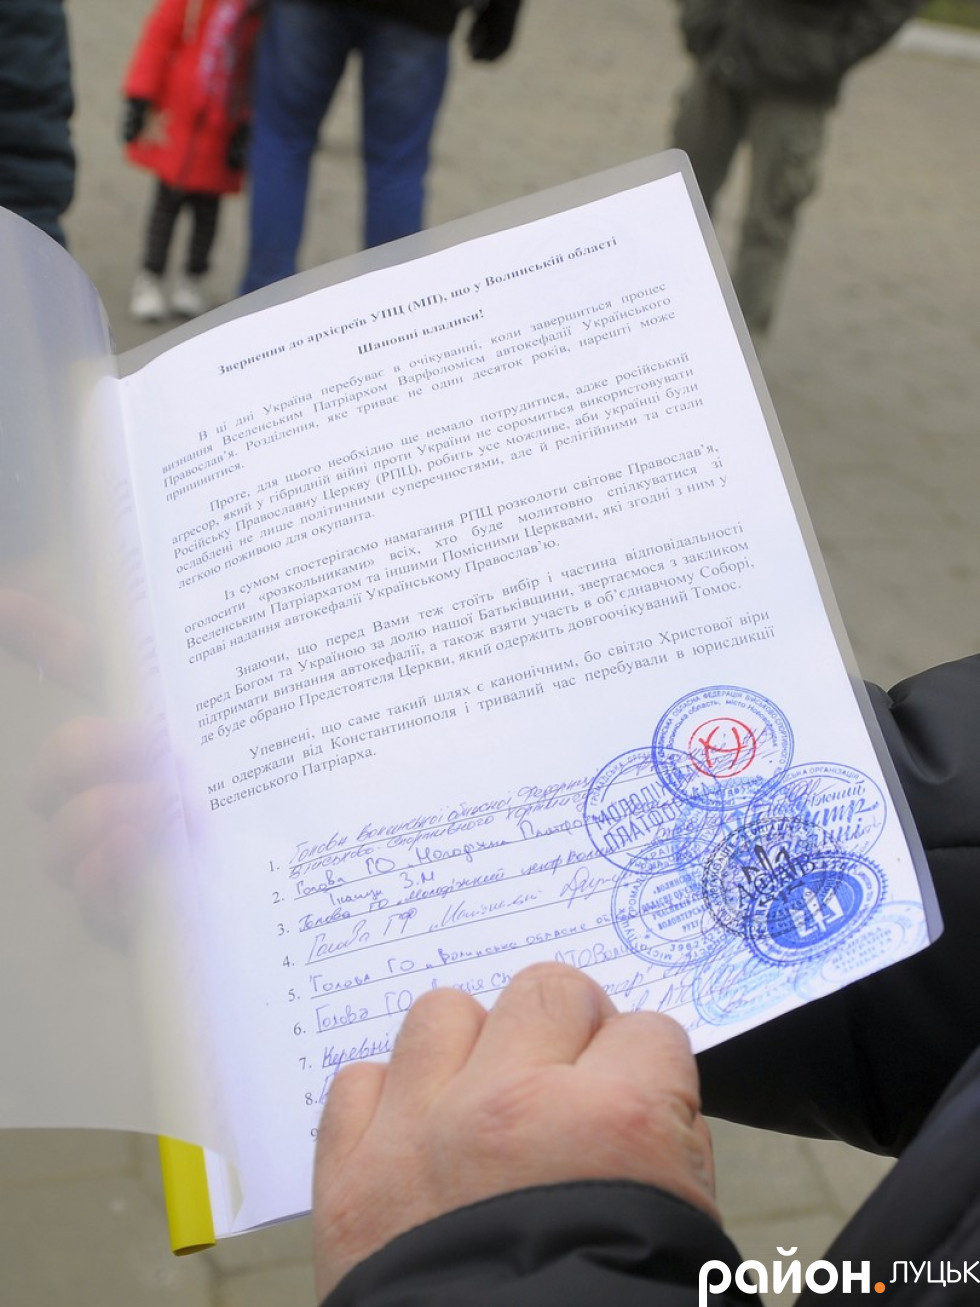 Звернення до архієреїв УПЦ (МП), що у Волинській області
Шановні владики!
В ці дні Україна перебуває в очікуванні, коли завершиться процес
визнання Вселенським Патріархом Варфоломієм автокефалії Українського
Православ'я. Розділення, яке триває не один десяток років, нарешті може
припинитися.
Проте, для цього необхідно ще немало потрудитися, адже російський
агресор, який у гібридній війні проти України не соромиться використовувати
Російську Православну Церкву (РПЦ), робить усе можливе, аби українці були
ослаблені не лише політичними суперечностями, але й релігійними та стали
легкою поживою для окупанта.
Із сумом спостерігаємо намагання РПЦ розколоти світове Православ'я,
оголосити «розкольниками» всіх, хто буде молитовно спілкуватися зі
Вселенським Патріархатом та іншими Помісними Церквами, які згодні з ним у
справі надання автокефалії Українському Православ'ю.
Знаючи, що перед Вами теж стоїть вибір і частина відповідальності
перед Богом та Україною за долю нашої Батьківщини, звертаємося з закликом
підтримати визнання автокефалії, а також взяти участь в об'єднавчому Соборі,
де буде обрано Предстоятеля Церкви, який одержить довгоочікуваний Томос.
Упевнені, що саме такий шлях є канонічним, бо світло Христової віри
ми одержали від Константинополя і тривалий час перебували в юрисдикції
Вселенського Патріарха.
1. Голова Волинської обласної Федерації
військово-спортивного
2. Голова ГО "Молодіжна Платформа
3. Голова ГО "Молодіжний центр Волині
4. Голова ГФ
5. Голова ГО "Волинське обласне
6. Голова ГО АТО
7. Керівни
8.
9
МОЛОДІЖНА
ПЛАТФОРМА
район.луцьк